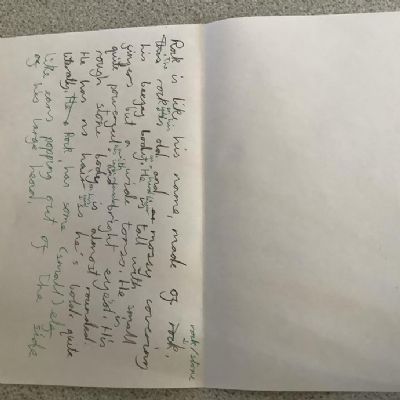 rock/stone
Rok is like his name, made of rock,
rock is old and mossy covering
his body. He is tall with small
fingers but a wide torso. He is
quite powerful with bright eyes. His
rough stone body is almost rounded.
He has no hair as he's bald quite
literally. Rok has some (small)
like ears popping out of the side
of his large head.